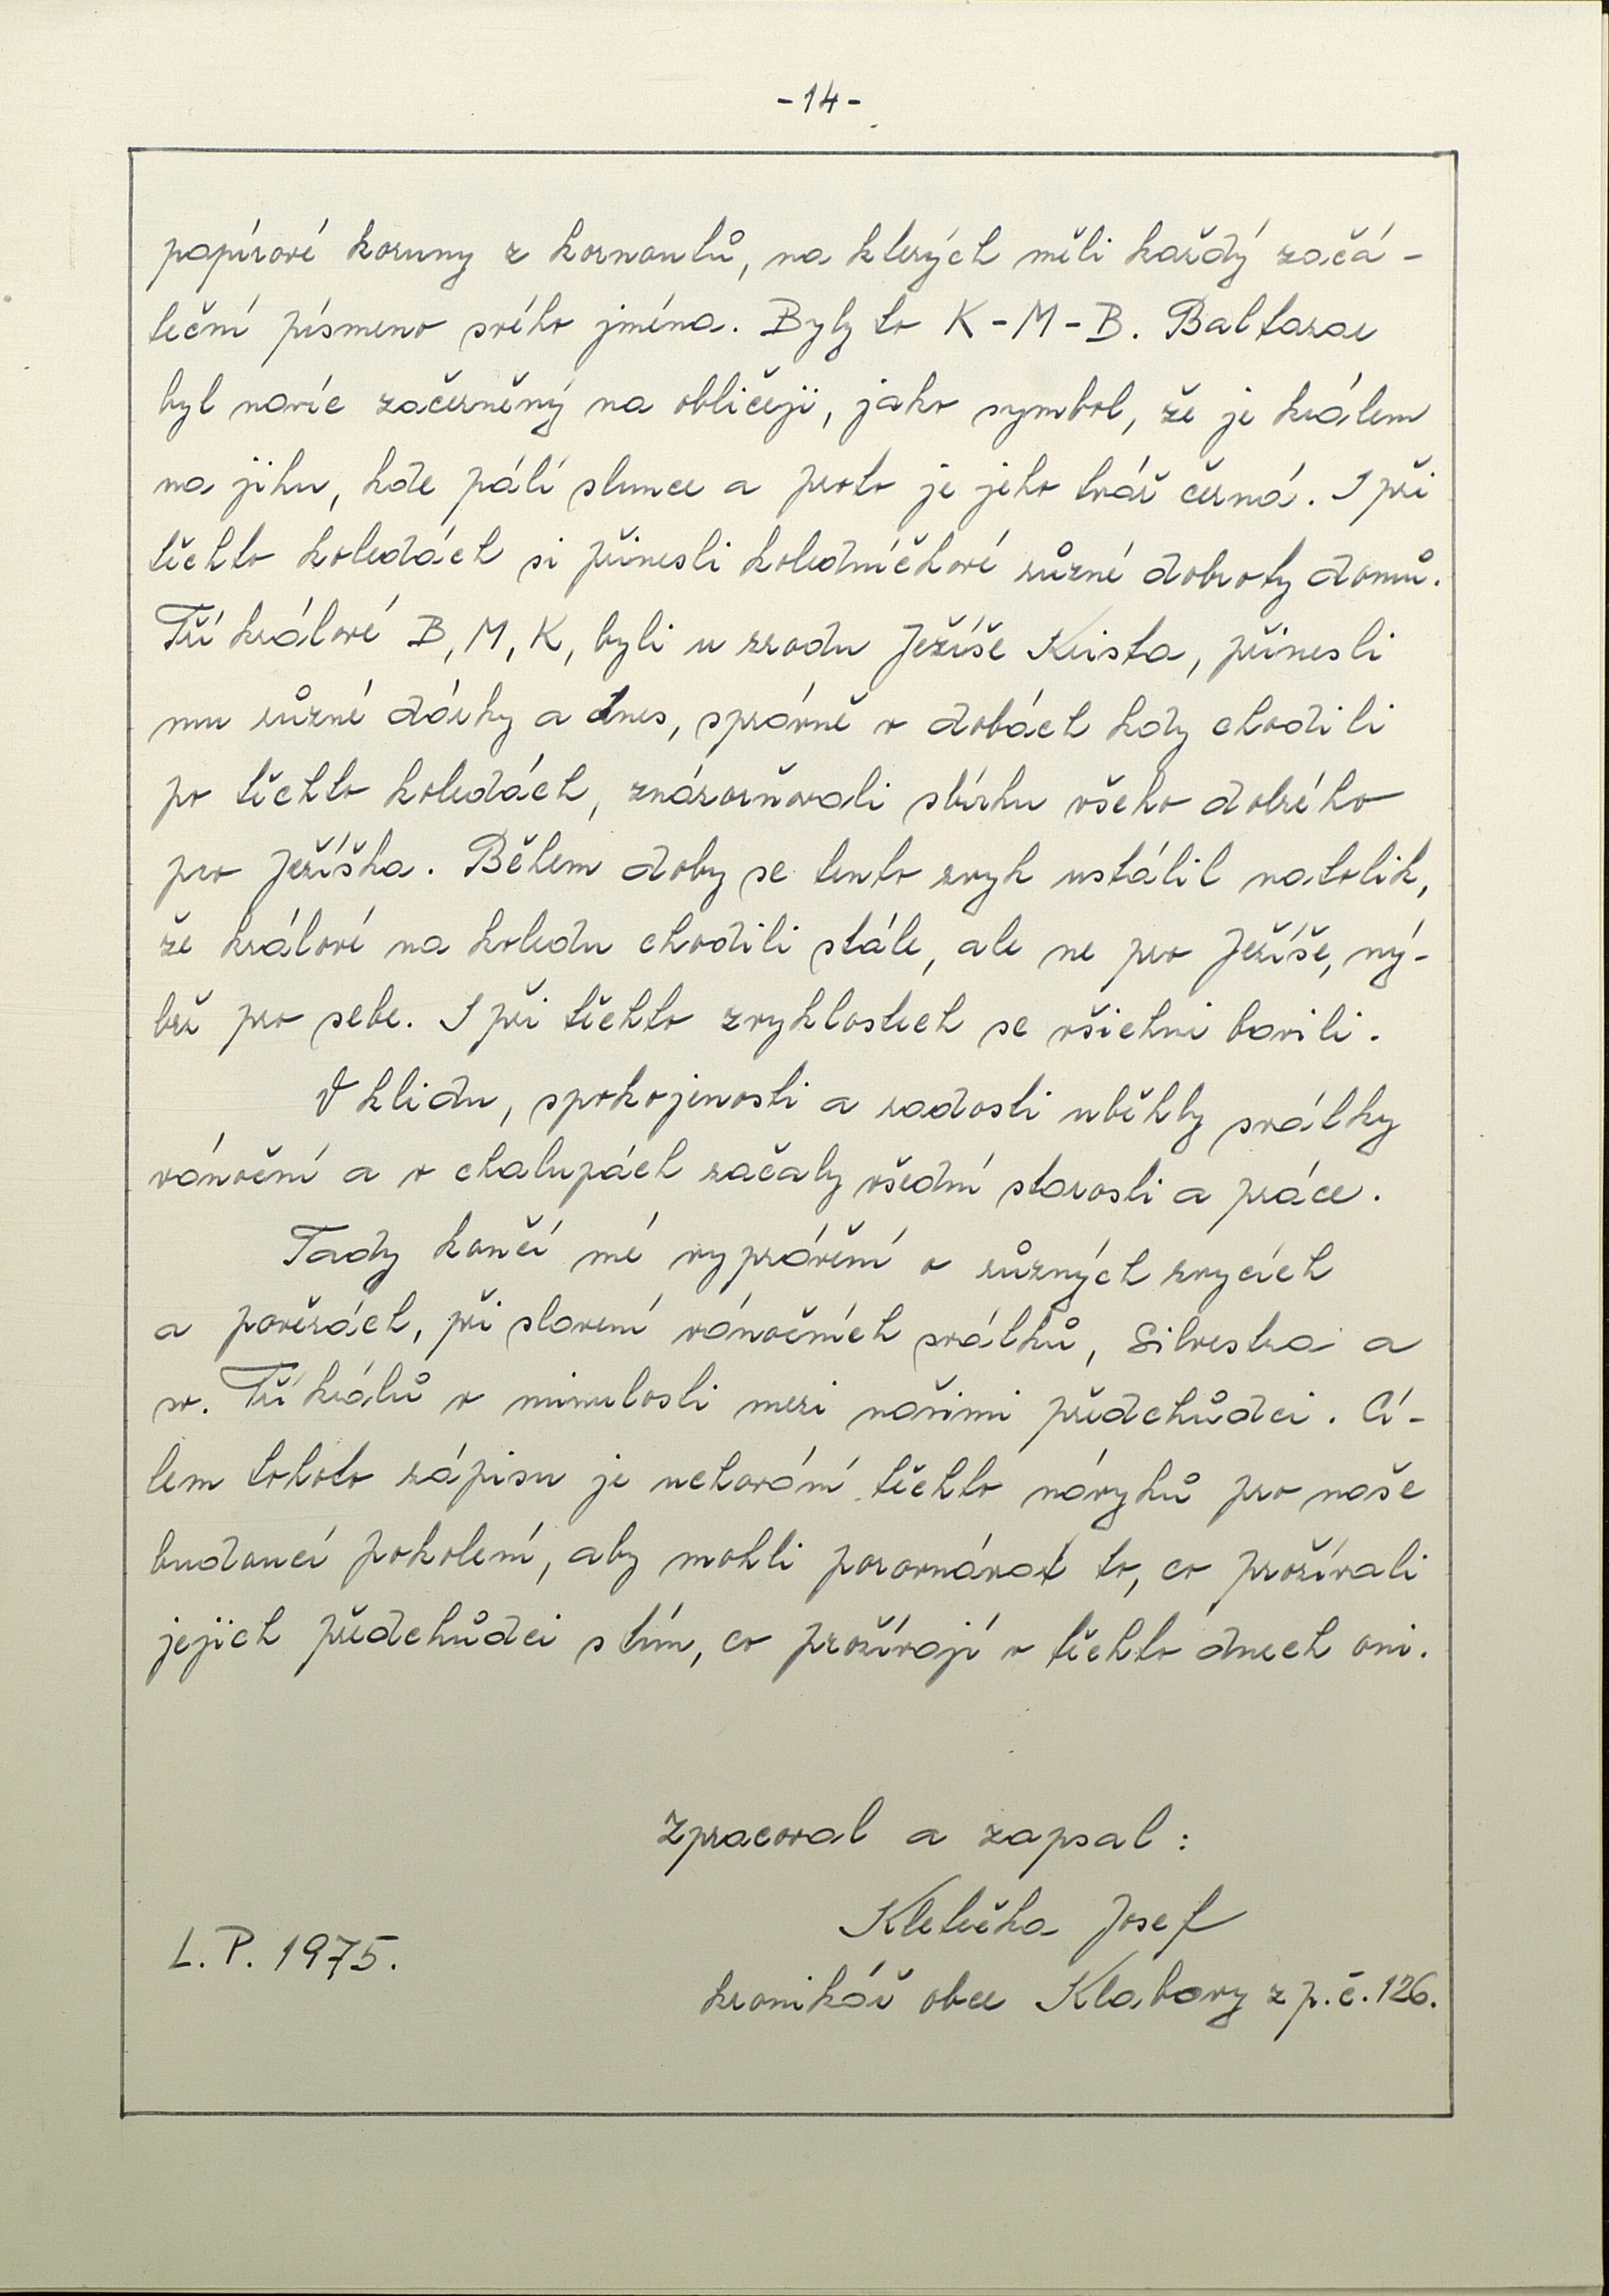 -14-
papírové koruny z kornoutů, na kterých měli každý začá-
teční písmeno svého jména. Byly to K-M-B. Baltazar
byl navíc začerněný na obličeji, jako symbol, že je králem
na jihu, kde pálí slunce a proto je jeho tvář černá. I při
těchto koledách si přinesli koledníčkové různé dobroty domů.
Tří králové B, M, K, byli u zrodu Ježíše Krista, přinesli
mu různé dárky a dnes, správně v dobách kdy chodili
po těchto koledách, znázorňovali sbírku všeho dobrého
pro Ježíška. Během doby se tento zvyk ustálil natolik,
že králové na koledu chodili stále, ale ne pro Ježíše, ný-
brž pro sebe. I při těchto zvyklostech se všichni bavili.
V klidu, spokojenosti a radosti uběhly svátky
vánoční a v chalupách začaly všední starosti a práce.
Tady končí mé vyprávění o různých zvycích
a pověrách, při slavení vánočních svátků, Silvestra a
sv. Tří králů v minulosti mezi našimi předchůdci. Cí-
lem tohoto zápisu je uchování těchto návyků pro naše
budoucí pokolení, aby mohli porovnávat to, co prožívali
jejich předchůdci s tím, co prožívají v těchto dnech oni.
Zpracoval a zapsal:
Kletečka Josef
L.P. 1975.
kronikář obce Klabavy z p.č. 126.